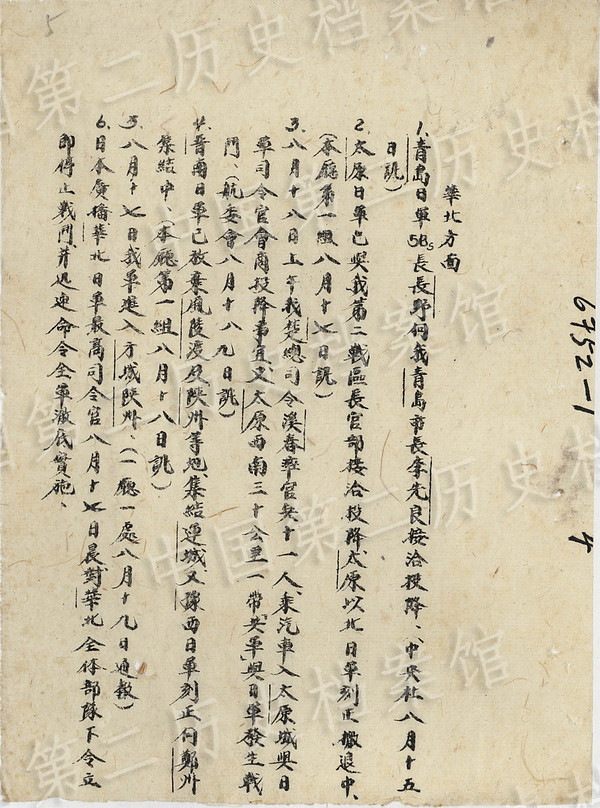 華北方面
1.青島日軍5Bs長長野向我青島市長李先良接洽投降、(中央社八月十五
日訊)
2.太原日軍已與我第二戰區長官部接洽投降太原以北日軍刻正撤退中、
(本廳第一組八月十七日訊)
3.八月十八日上午我楚總司令溪春率官兵十一人乘汽車入太原城與日
軍司令官會商投降事宜又太原西南三十公里一帶共軍與日軍發生戰
鬥、(航委會八月十八九日訊)
4.晉南日軍已放棄風陵渡及陝州等地集結運城又豫西日軍刻正向鄭州
集結中、(本廳第一組八月十八日訊)
5.八月十七日我軍進入方城陝州、(一廳一處八月十九日通報)
6.日本廣播華北日軍最高司令官八月十七日晨對華北全体部隊下令立
即停止戰鬥並迅速命令全軍澈底實施、
5
6752-1
4
中国第二历史档案馆